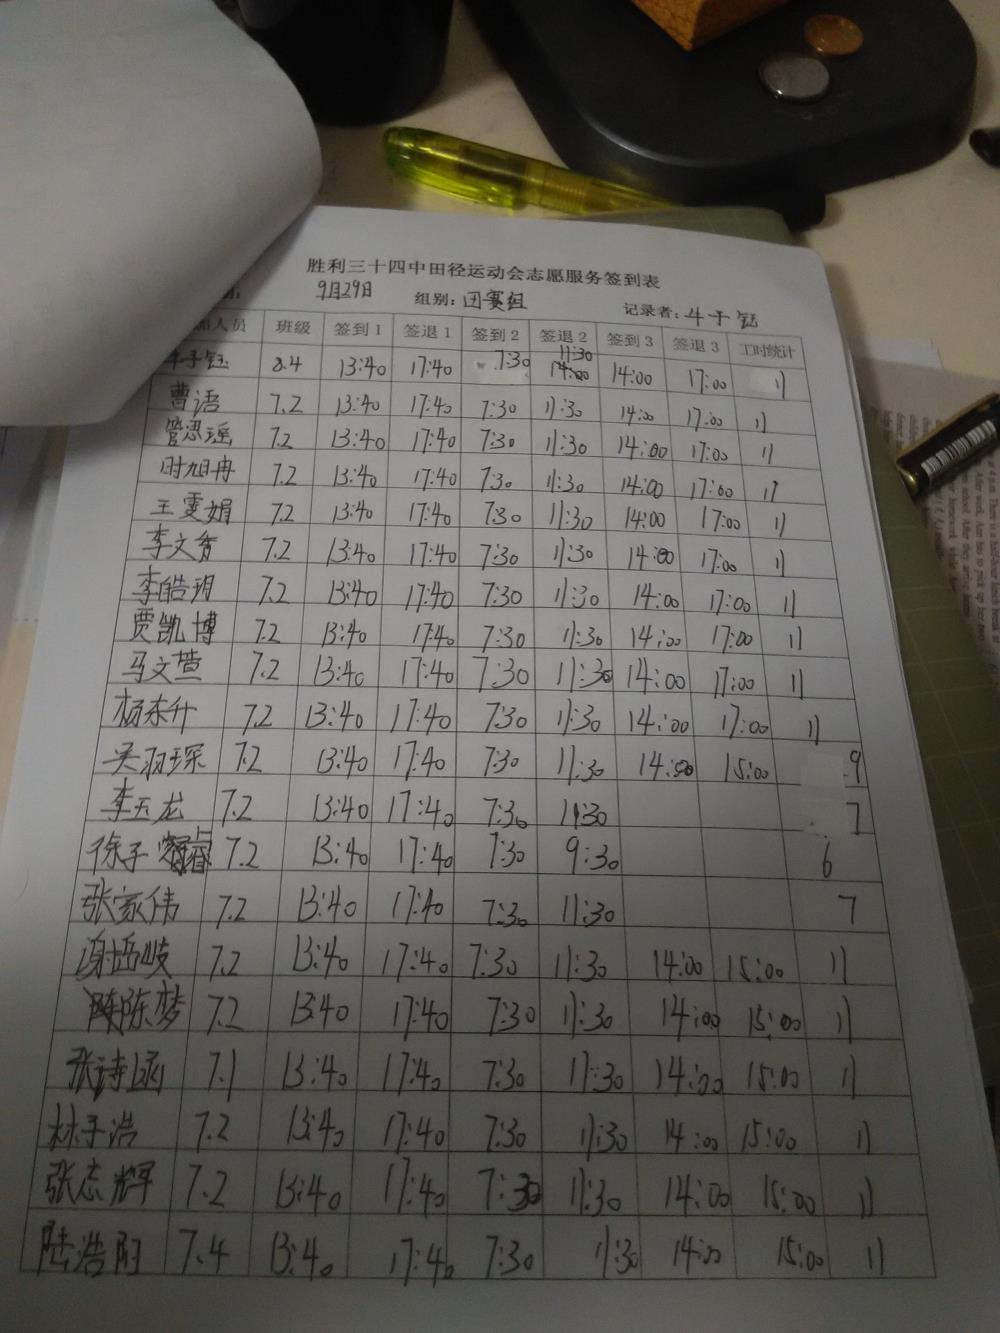 胜利三十四中田径运动会志愿服务签到表
9月29日 组别：田赛组 记录者：牛子钰
人员 班级 签到1 签退1 签到2 签退2 签到3 签退3 工时统计
牛子钰 8.4 13:40 17:40 7:30 11:30 14:00 14:00 17:00 11
曹语 7.2 13:40 17:40 7:30 11:30 14:00 17:00 11
管思瑶 7.2 13:40 17:40 7:30 11:30 14:00 17:00 11
时旭冉 7.2 13:40 17:40 7:30 11:30 14:00 17:00 11
王雯娟 7.2 13:40 17:40 7:30 11:30 14:00 17:00 11
李文秀 7.2 13:40 17:40 7:30 11:30 14:00 17:00 11
李皓玥 7.2 13:40 17:40 7:30 11:30 14:00 17:00 11
贾凯博 7.2 13:40 17:40 7:30 11:30 14:00 17:00 11
马文萱 7.2 13:40 17:40 7:30 11:30 14:00 17:00 11
杨东升 7.2 13:40 17:40 7:30 11:30 14:00 17:00 11
吴羽琛 7.2 13:40 17:40 7:30 11:30 14:00 15:00 9
李玉龙 7.2 13:40 17:40 7:30 11:30 7
徐子睿 7.2 13:40 17:40 7:30 9:30 6
张家伟 7.2 13:40 17:40 7:30 11:30 7
7.2 13:40 17:40 7:30 11:30 14:00 15:00 11
陈梦 7.2 13:40 17:40 7:30 11:30 14:00 15:00 11
张诗涵 7.1 13:40 17:40 7:30 11:30 14:00 15:00 11
林子浩 7.2 13:40 17:40 7:30 11:30 14:00 15:00 11
张志辉 7.2 13:40 17:40 7:30 11:30 14:00 15:00 11
陆浩阳 7.4 13:40 17:40 7:30 11:30 14:00 15:00 11